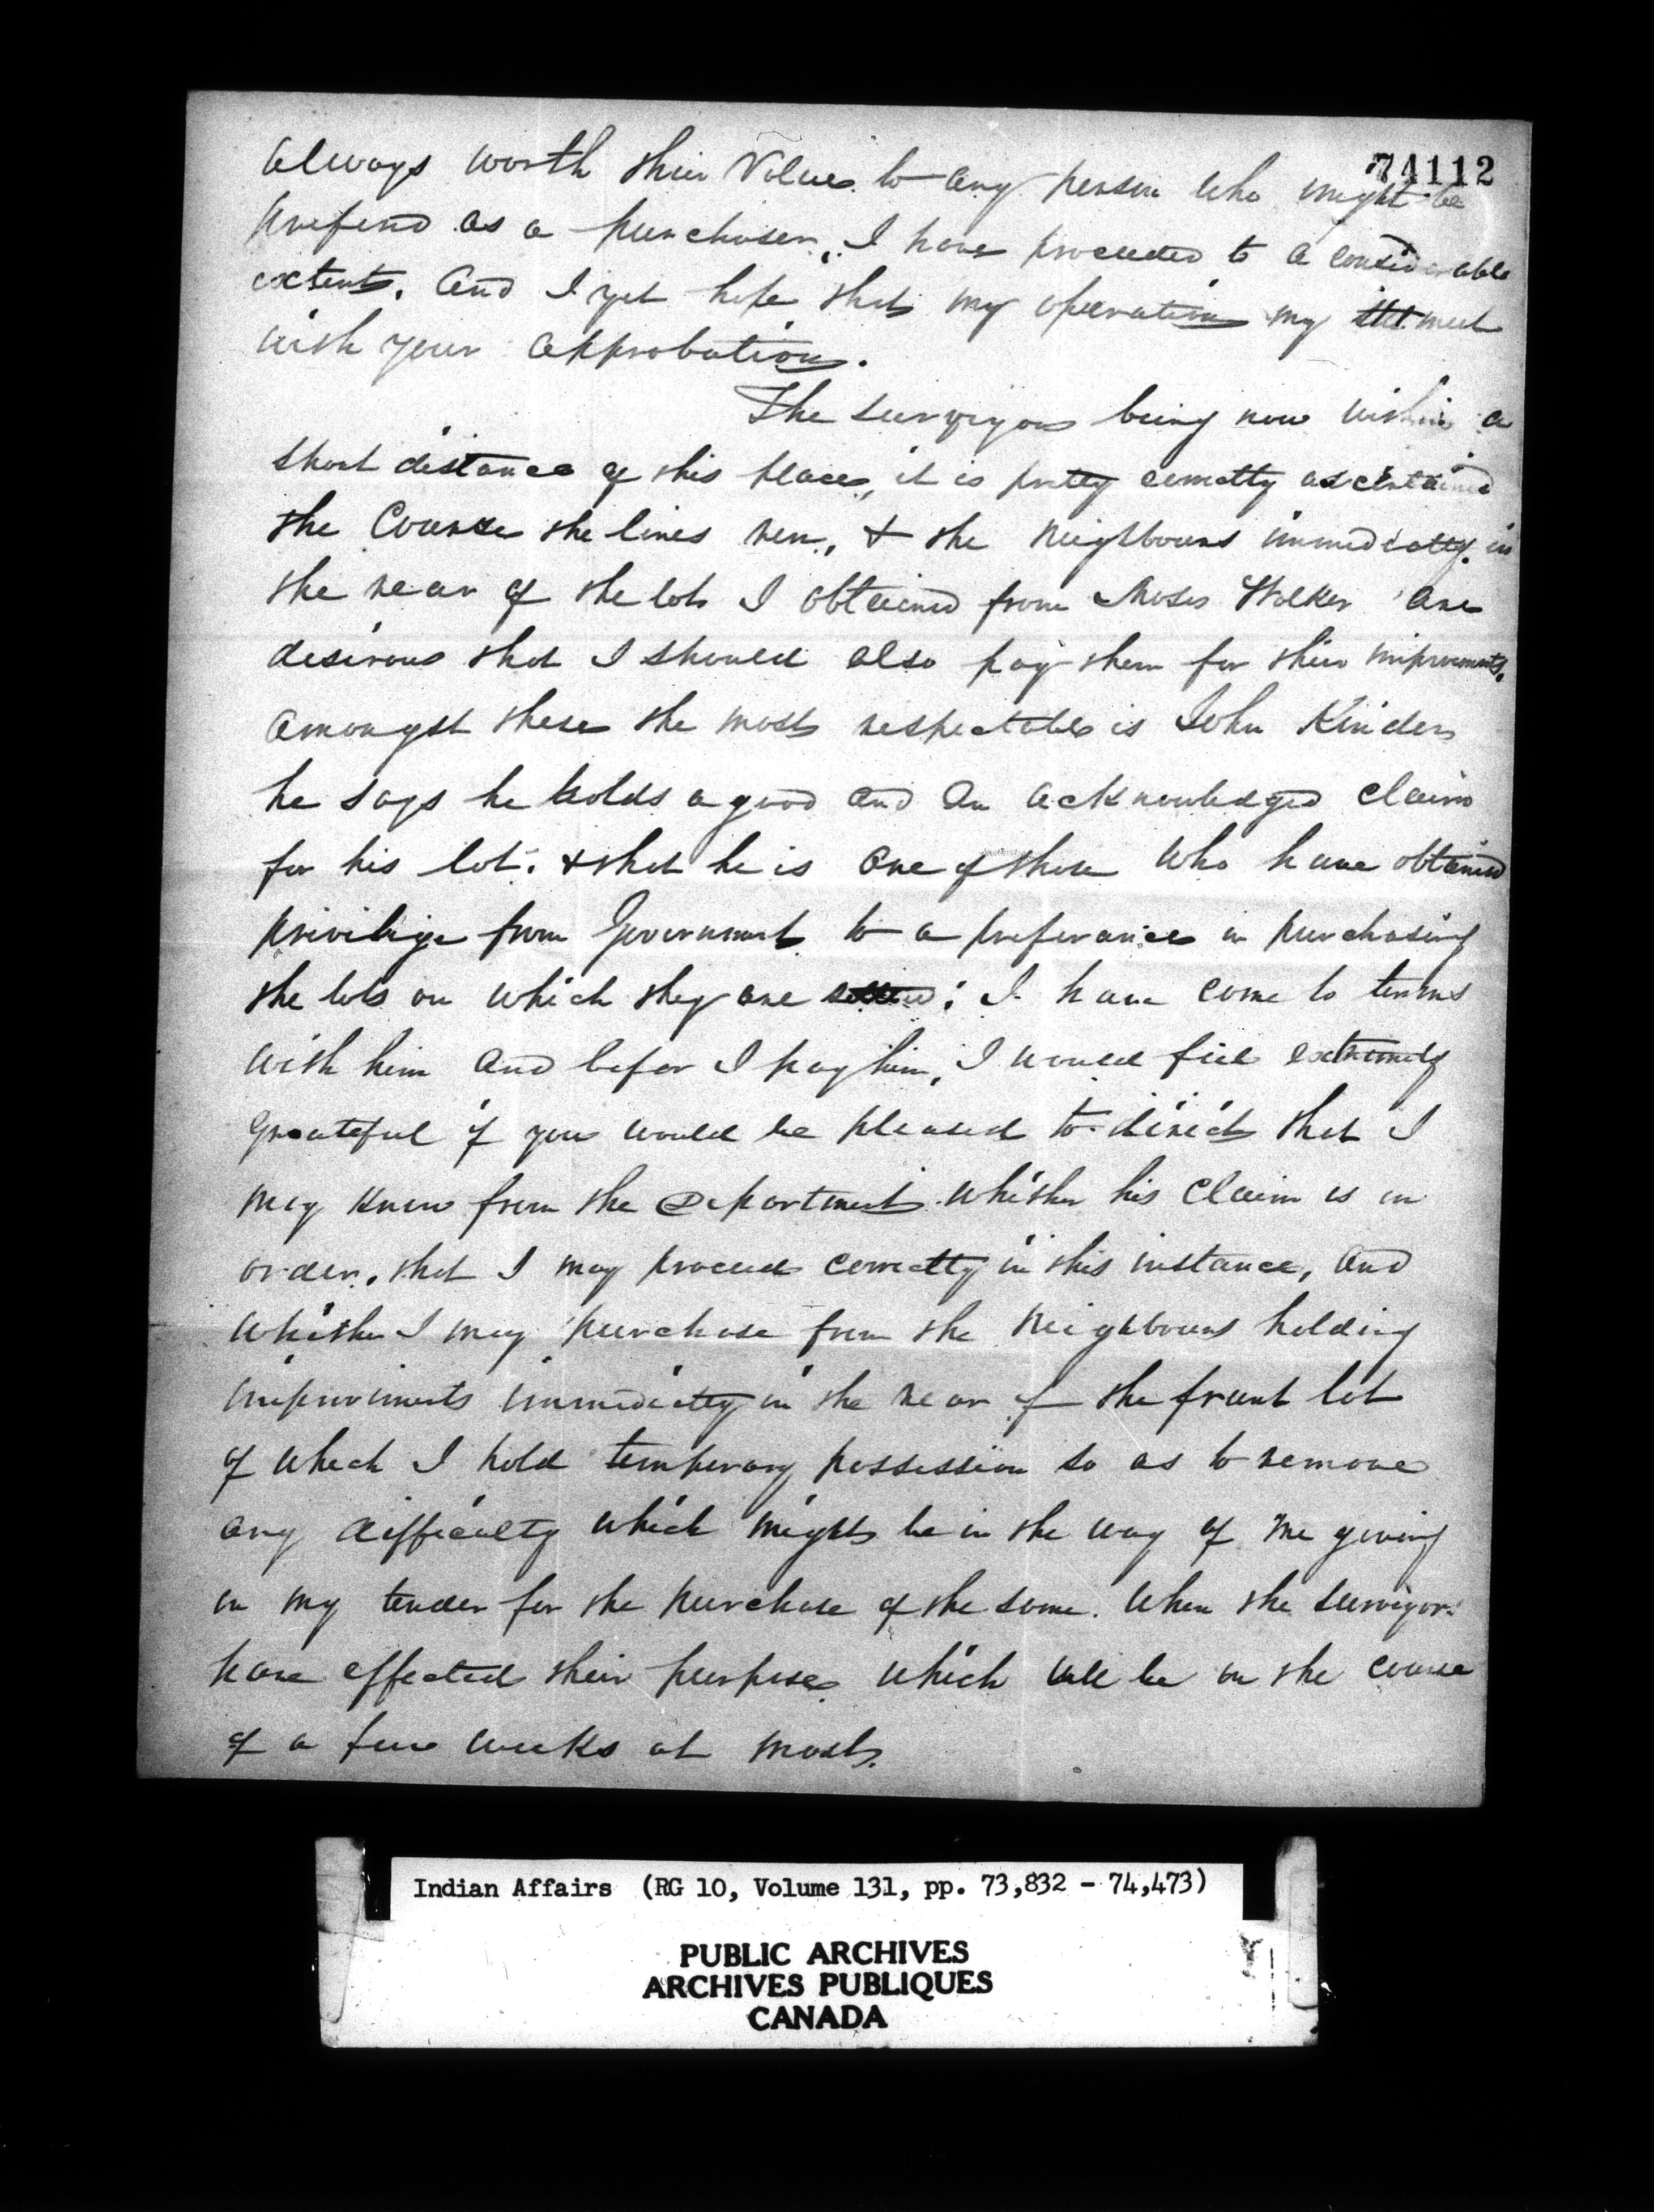 74112
always worth their Value to any person who might be
prefered as a purchaser, I have proceeded to a considerable
extent, and I yet hope that my operations my meet
with your approbation.
The surveyors being now within a
short distance of this place, it is pretty correctly ascertained
the Course the lines run, & the Neighbours immediatly in
the rear of the lots I obtained from Moses Walker are
desirous that I should also pay them for their improvements,
amongst these the most respectable is John Kinder
he says he holds a good and an acknowledged claim
for his lot. & that he is one of those who have obtained
privilige from Government to a preferance in purchasing
the lots on which they are settled; I have come to terms
with him and befor I pay him, I would feel extremely
grateful if you would be pleased to direct that I
may know from the Department whether his claim is in
order, that I may proceed correctly in this instance, and
whether I may purchase from the Neighbours holding
improvments immediatly in the rear of the frunt lot
of which I hold temperary possession so as to remove
any difficulty which might be in the way of me giving
in my tender for the purchase of the same. When the surveyors
have effected their purpose which will be in the course
of a few weeks at most.
Indian Affairs (RG 10, Volume 131, pp. 73,832 - 74,473)
PUBLIC ARCHIVES
ARCHIVES PUBLIQUES
CANADA